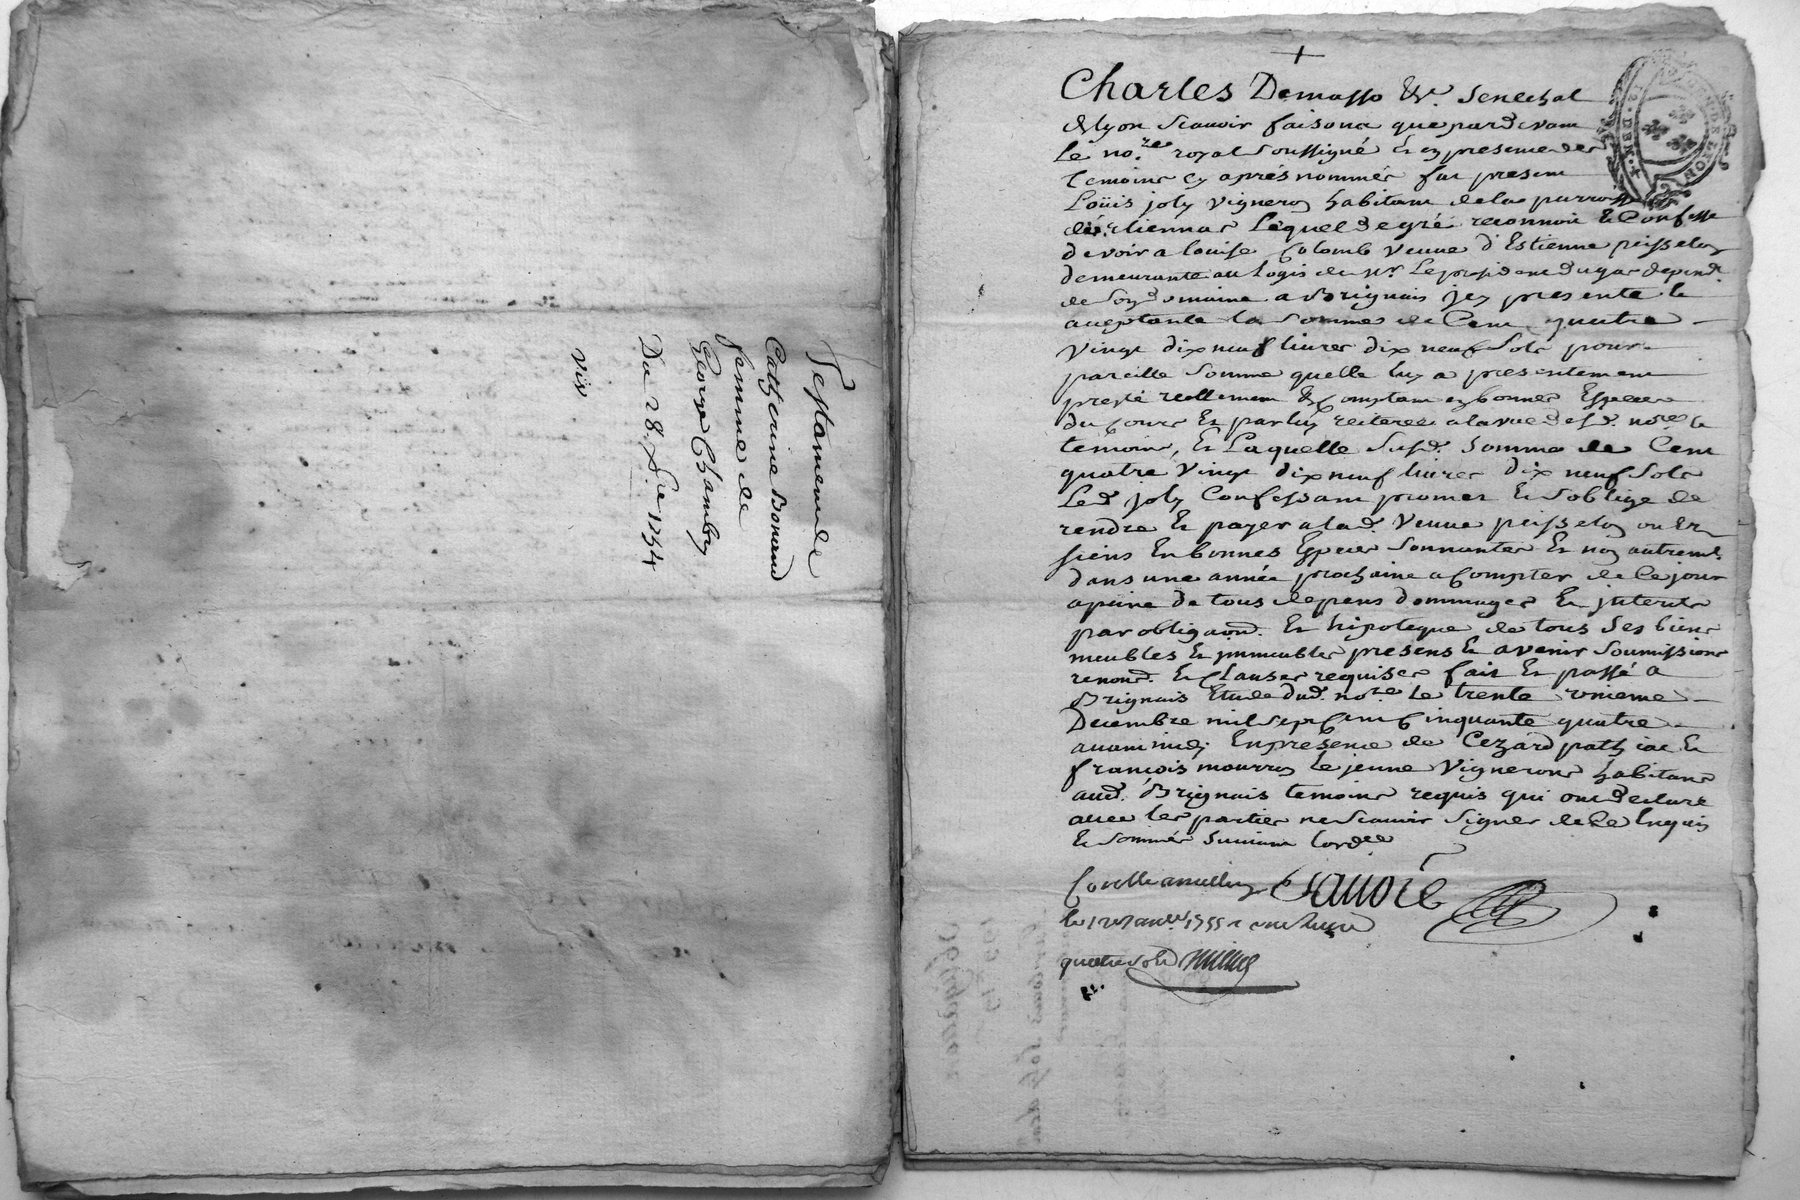 Testament de
Catherine Bonand
femme de
George Chambry
Du 28. 1754
vis
+
Charles Demasso &r. Senechal
de lyon Scavoir faisons que pardevant
Le no.re royal Soussigné Et en presence des
temoins cy après nommés fut present
Loüis joly Vigneron habitant de la parroisse
Lequel de gré reconnoit Et Confesse
devoir a louise Colomb Veuve d'Estienne peisselon
demeurante au logis de Mr. Le president dugas depend.t
de Son domaine a Brignais jcy presente Et
acceptante la Somme de Cent quatre
Vingt dix neuf livres dix neuf Sols pour
pareille Somme quelle luy a presentement
presté reellement & Comptant en bonnes Especes
du Cours Et par luy retirées a la vue desd. no.re Et
temoins, Et Laquelle Susd. Somme de Cent
quatre Vingt dix neuf livres dix neuf Sols
Led. joly Confessant promet Et Soblige de
rendre Et payer a lad. Veuve peisselon ou Es
siens En bonnes Especes Sonnantes Et non autrem.t
dans une année prochaine a Compter de Ce jour
a peine de tous depens dommages Et jnterets
par obligaon. Et hipoteque de tous Ses biens
meubles Et jmmeubles presens Et avenir Soumissions
renond. Et Clauses requises fait Et passé a
Brignais Etude dud. no.re le trente unieme
Decembre mil Sept Cent Cinquante quatre
avant midy En presence de Cezard
françois mourron le jeune Vignerons habitans
aud. Brignais temoins requis qui ont declaré
avec les parties ne Scavoir Signer de Ce Enquis
Et Sommés Suivant lord.ce
Conollé a millery
le 1755 livre
quatre sols